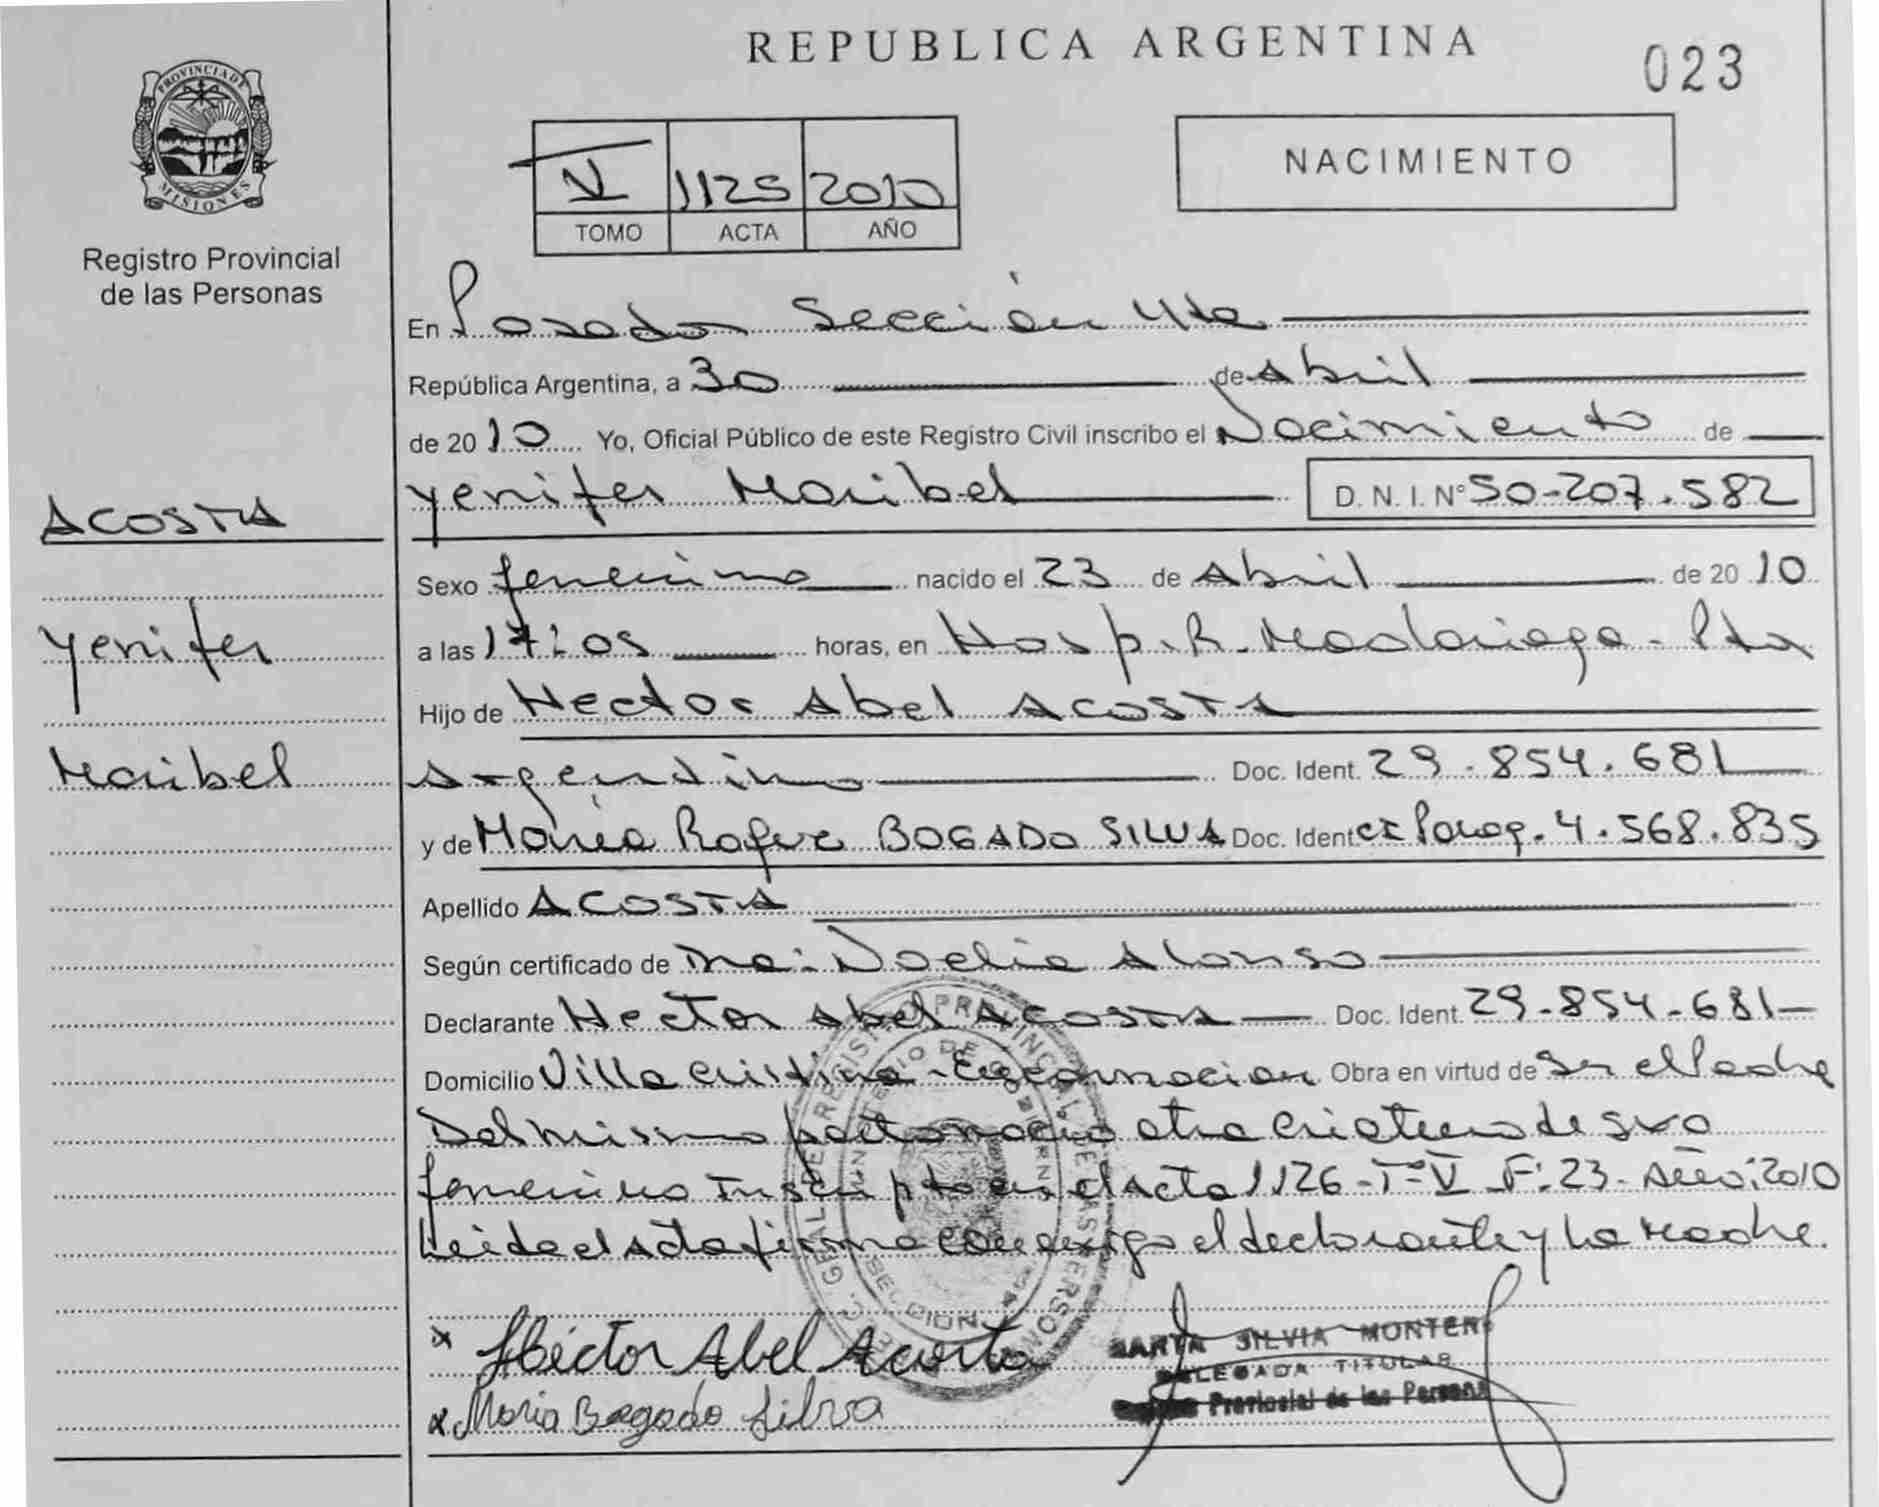 REPUBLICA ARGENTINA
023
PROVINCIA DE
MISIONES
Registro Provincial
de las Personas
V 1125 2010
TOMO ACTA AÑO
NACIMIENTO
En Posadas Sección 4ta
República Argentina, a 30 de Abril
de 2010 Yo, Oficial Público de este Registro Civil inscribo el Nacimiento de
Yenifer Maribel D. N. I. N° 50-207.582
ACOSTA
Yenifer
Maribel
Sexo femenino nacido el 23 de Abril de 2010
a las 17:05 horas, en Hosp. R. Madariaga - Pdas
Hijo de Hector Abel ACOSTA
Argentino Doc. Ident. 29.854.681
y de María Roque BOGADO SILVA Doc. Ident CI Parag. 4.568.835
Apellido ACOSTA
Según certificado de Dra: Noelia Alonso
Declarante Hector Abel ACOSTA Doc. Ident. 29-854-681
Domicilio Villa Cristina - Encarnacion Obra en virtud de Ser el Padre
Del mismo parto nacio otra criatura de sexo
femenino Inscripta en el Acta 1126 - T° V F: 23 - Año: 2010
Leida el Acta firma conmigo el declarante y la Madre.
x Héctor Abel Acosta
x Maria Bogado Silva
MARTA SILVIA MONTERO
DELEGADA TITULAR
Provincial de las Personas